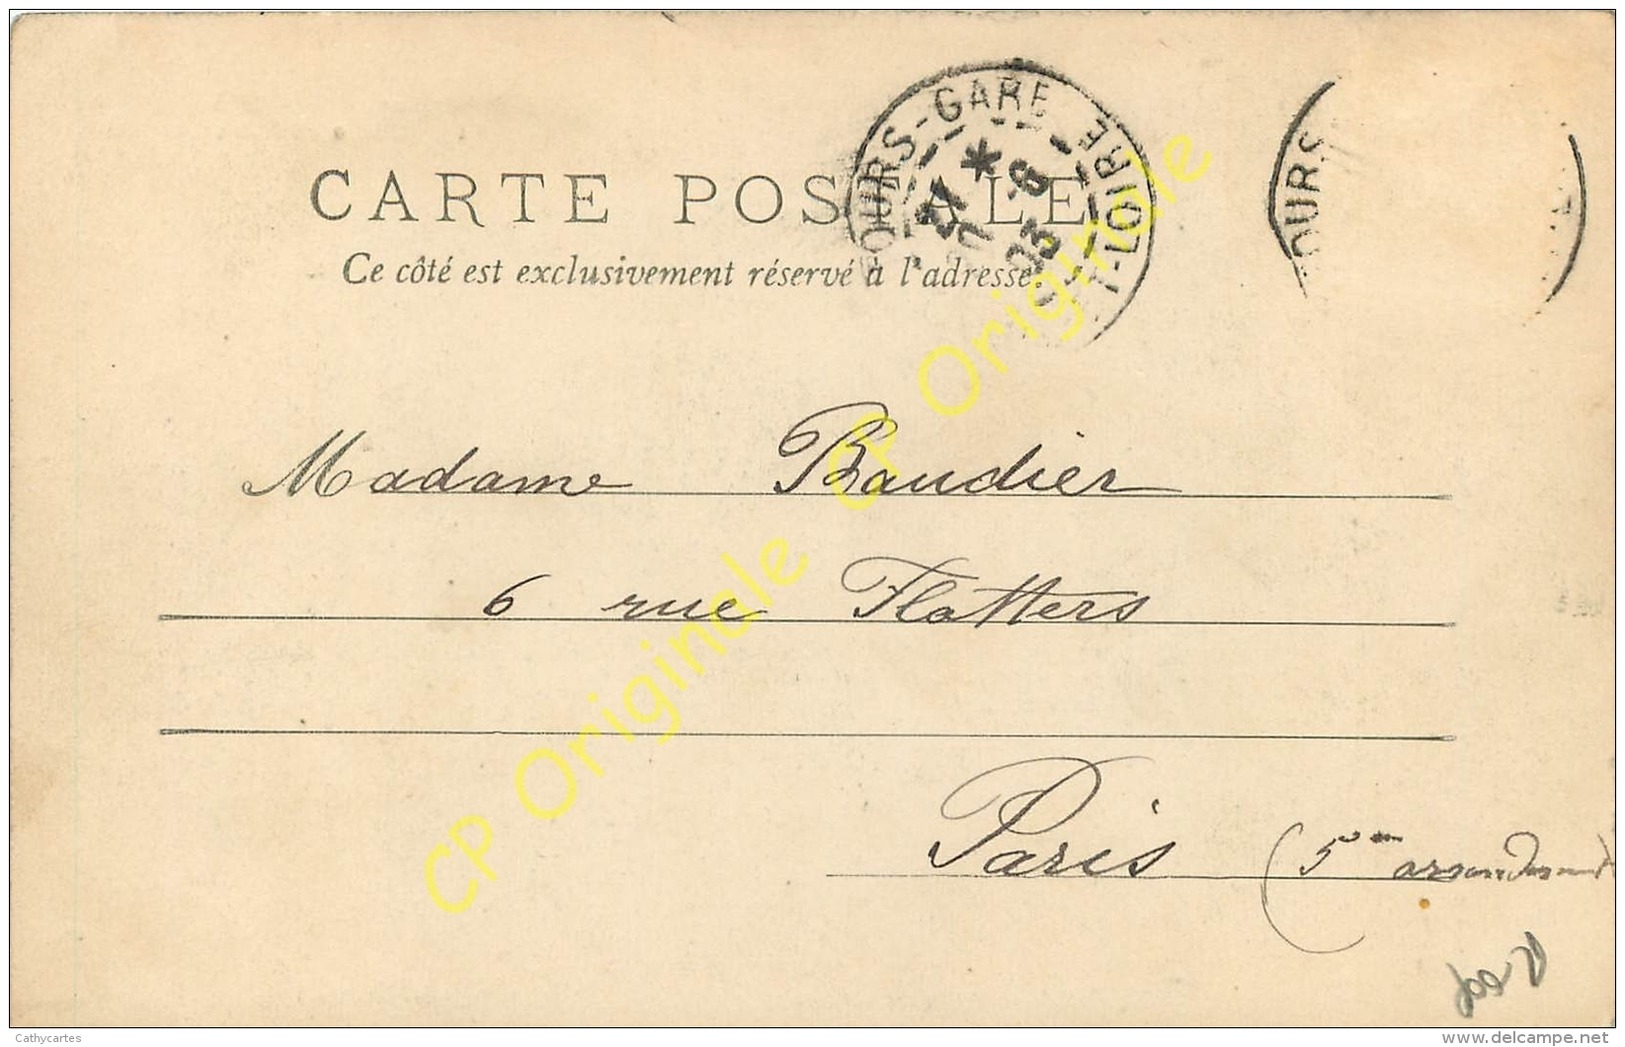 CARTE POSTALE
Ce côté est exclusivement réservé à l'adresse
TOURS-GARE
I.-LOIRE
03
OURS
Madame Baudier
6 rue Flatters
Paris (5me arrondissement)
CP Originale CP Originale
Cathycartes
www.delcampe.net